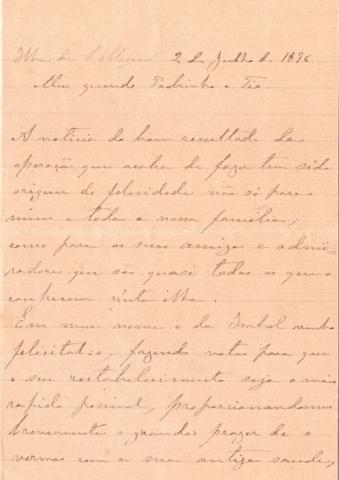 Ilha de S. Miguel 2 de Julho de 1896
Meu querido Padrinho e Tio.
A noticia do bom resultado da
operação que acaba de fazer tem sido
origem de felicidade não só para
mim e toda a nossa familia,
como para os seus amigos e admi-
radores que são quase todos os que o
conhecem n'esta ilha.
Em meu nome e da Isabel venho
felicital-o, fazendo votos para que
o seu restabelecimento seja o mais
rapido possivel, proporcionando-nos
brevemente o grande prazer de o
vermos com a sua antiga saude,